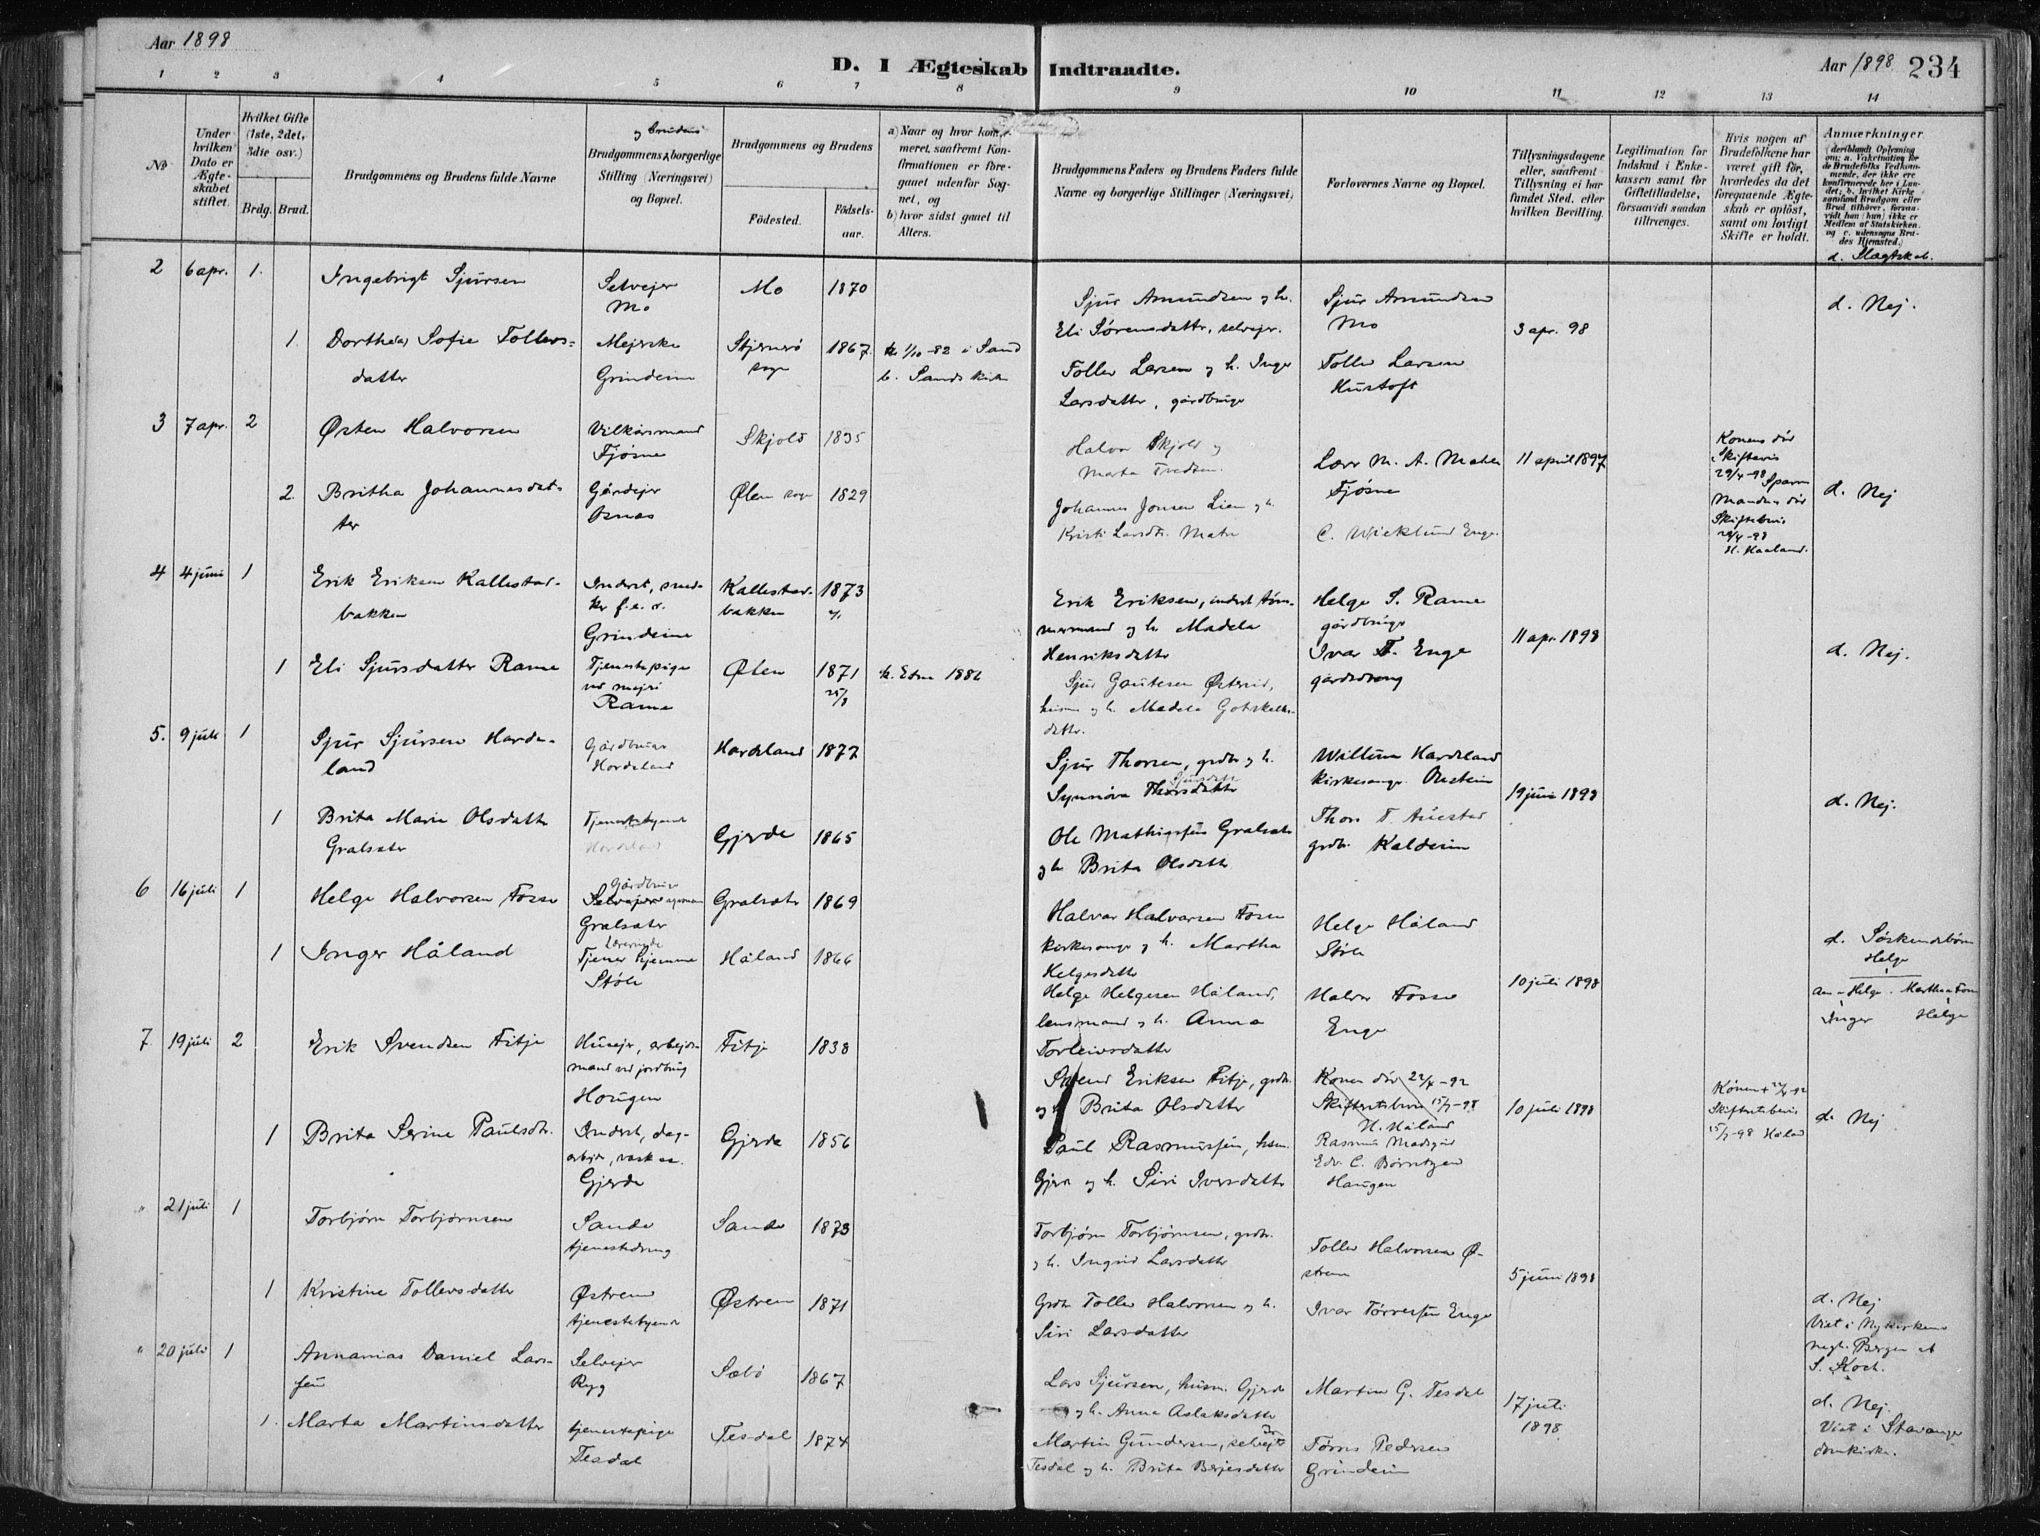 Aar 1898
D. I Ægteskab Indtraadte.
Aar 1898
234
1 2 3 4 5 6 7 8 9 10 11 12 13 14
No
Under hvilken Dato er Ægteskabet stiftet.
Hvilket Gifte (1ste, 2det, 3die osv.)
Brdg. Brud.
Brudgommens og Brudens fulde Navne
og brudens
Brudgommens borgerlige Stilling (Næringsvei) og Bopæl.
Brudgommens og Brudens
Födested.
Födselsaar.
a) Naar og hvor konfirmeret, saafremt Konfirmationen er foregaaet udenfor Sognet, og
b) hvor sidst gaaet til Alters.
Brudgommens Faders og Brudens Faders fulde Navne og borgerlige Stillinger (Næringsvei)
Forlovernes Navne og Bopæl.
Tillysningsdagene eller, saafremt Tillysning ei har fundet Sted, efter hvilken Bevilling.
Legitimation for Indskud i Enkekassen samt for Giftetilladelse, forsaavidt saadan tiltrænges.
Hvis nogen af Brudefolkene har været gift för, hvorledes da det foregaaende Ægteskab er oplöst, samt om lovligt Skifte er holdt.
Anmærkninger (deriblandt Oplysning om: a. Vakcination for de Brudefolks Vedkommende, der ikke ere konfirmerede her i Landet; b. hvilket Kirkesamfund Brudgom eller Brud tilhörer, forsaavidt han (hun) ikke er Medlem af Statskirken, og c. udensogns Brudes Hjemsted.)
d. Slægtskab.
2 6 apr. 1. Ingebrigt Sjursen
Selvejer
Mo
Mo 1870
Sjur Amundsen og h.
Eli Sörensdatter, selvejer.
Sjur Amundsen
Mo
3 apr. 98
d. Nej.
1. Dorthea Sofie Tollevsdatter
Mejerske
Grindeim
Stjernerö
sogn
1867
k. 1/10-82 i Sand
b. Sands kirke
Tollev Larsen og h. Inger
Larsdatter, gårdbruger
Tollev Larsen
Hustoft
3 7 apr. 2 Østen Halvorsen
Vilkårsmand
Fjösne
Skjold 1835
Halvor Skjold og
Marta Tvedten.
Lærer M. A. Matre
Fjösne
11 april 1897
Konens död
Skiftevis
29/4-98
2. Britha Johannesdatter
Gårdejer
Osnes
Ølen sogn 1829
Johannes Jonsen Lien og h.
Kristi Larsdtr. Matre
C. Wicklund Enge.
Mandens död
Skiftebevis
29/4-98
H. Haaland.
d. Nej
4 4 juni 1 Erik Eriksen Kallestadbakken
Inderst, snedker f. e. o.
Grindeim
Kallestadbakken 1873
Erik Eriksen, inderst tömmermand og h. Madela
Henriksdatter
Helge S. Rame
gårdbruger
11 apr. 1898
1 Eli Sjursdatter Rame
Tjenestepige
ved mejeri
Rame
Ølen 1871
25/8
k. Etne 1886
Sjur Gautesen Østenvid,
husm og h. Madela Gotskalksdatter.
Ivar T. Enge
gårdsdreng
d. Nej.
5. 9 juli 1 Sjur Sjursen Hardeland
Gårdbruger
Hardeland
Hardeland 1877
Sjur Thorsen, grdbr og h.
Synnöva Thorsdatter
Sjursdatter
Willum Hardeland
kirkesanger Onsteim
19 juni 1898
1 Brita Marie Olsdatter
Gralsater
Tjenestejente
Hardeland
Gjerde 1865
Ole Mathiassen Gralsater
og h Brita Olsdatter
Thore T. Auestad
grdbr. Kaldeim
d. Nej.
6 16 juli 1 Helge Halvorsen Fosse
Gårdbruger
Selvejer
Gralsater
Gralsater 1869
Halvor Halvorsen Fosse
kirkesanger og h. Martha
Helgesdatter
Helge Håland
Støle
10 juli 1898
1 Inger Håland
Lærerinde
Tjener hjemme
Støle
Håland 1866
Helge Helgesen Håland,
lensmand og h. Anna
Torleivsdatter
Halvor Fosse
Enge
d. Söskendebörn
Helge
Helge. Martha Fosse
Inger Helge
7 19 juli 2 Erik Svendsen Fitje
Husejer, arbejdsmand ved jordbrug
Hougen
Fitje 1838
Svend Eriksen Fitje, grdbr.
og h Brita Olsdatter
Konen död 22/4-92
Skifteattestbevis 15/7-98
H. Håland
10 juli 1898
Konen + 22/4-92
Skifteattestbevis
15/7-98 Håland
d. Nej
1 Brita Serine Paulsdtr.
Inderst, dagarbejder, vask
Gjerde
Gjerde 1856
Paul Rasmussen, hsm.
Gjerde og h. Siri Iversdatter
Rasmus Madsgård
Edv. C. Börntzen
Haugen
" 21 juli 1 Torbjörn Torbjörnsen
Sande
tjenestedreng
Sande 1873
Torbjörn Torbjörnsen, grdbr.
og h. Ingrid Larsdatter
Tollev Halvorsen Østrem
5 juni 1898
1 Kristine Tollevsdatter
Østrem
tjenestejente
Østrem 1871
Grdbr Tollev Halvorsen og h.
Siri Larsdatter
Ivar Törressen Enge
d. Nej
Viet i Nykirkens
megh. Bergen af
S. Koch.
" 20 juli 1 Annanias Daniel Larsen
Selvejer
Ryg
Sæbö 1867
Lars Sjursen, husm. Gjerde
og h. Anna Aslaksdatter
Martin G. Tesdal
17 juli
1898
d. Nej.
Viet i Stavanger
domkirke.
1. Marta Martinsdatter
tjenestepige
Tesdal
Tesdal 1874
Martin Gundersen, selvejer
Tesdal og h. Brita Berjesdatter
Törres Pedersen
Grindeim